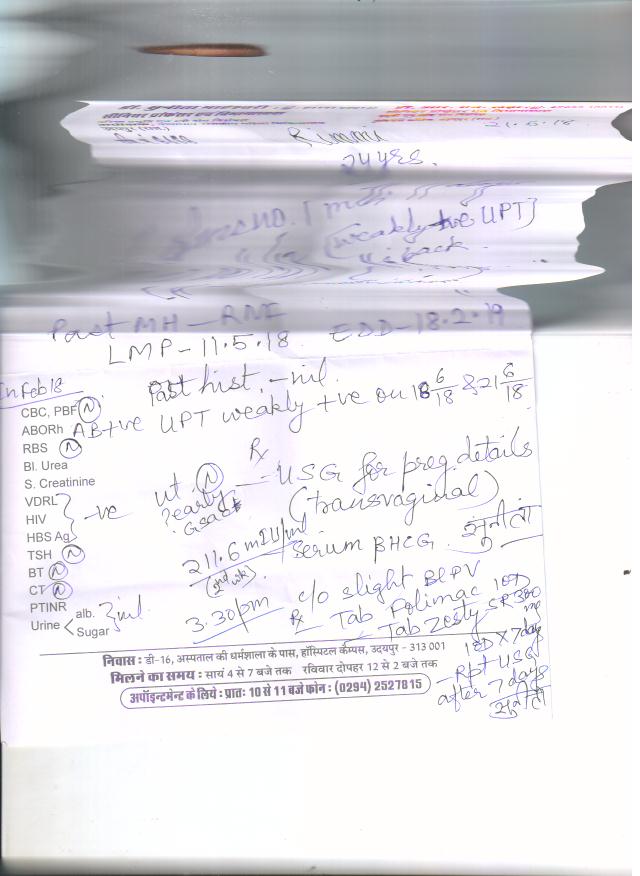 21.6.18
Rimmu
24 yrs.
(weakly +ve UPT)
back
Past MH - RNF
LMP - 11.5.18 EDD - 18.2.19
In Feb 18
Past hist. - nil.
CBC, PBF (N)
UPT weakly +ve on 18 6/18 & 21 6/18
ABORh AB+ve
RBS (N)
Bl. Urea
S. Creatinine
VDRL
HIV -ve
HBS Ag
TSH (N)
BT (N)
CT (N)
PTINR
Urine alb. Sugar } nil
Rx
ut (N) - USG for preg. details
?early G. sac (transvaginal)
211.6 mIU/ml Serum βHCG. सुनीता
(2nd wk)
3.30pm c/o slight Bl PV
Rx Tab Folimac 1OD
Tab Zesty SR 300 mg
1OD X 7 days
- Rpt USG
after 7 days
सुनीता
निवास : डी-16, अस्पताल की धर्मशाला के पास, हॉस्पिटल केम्पस, उदयपुर - 313 001
मिलने का समय : सायं 4 से 7 बजे तक रविवार दोपहर 12 से 2 बजे तक
अपॉइन्टमेन्ट के लिये : प्रातः 10 से 11 बजे फोन : (0294) 2527815